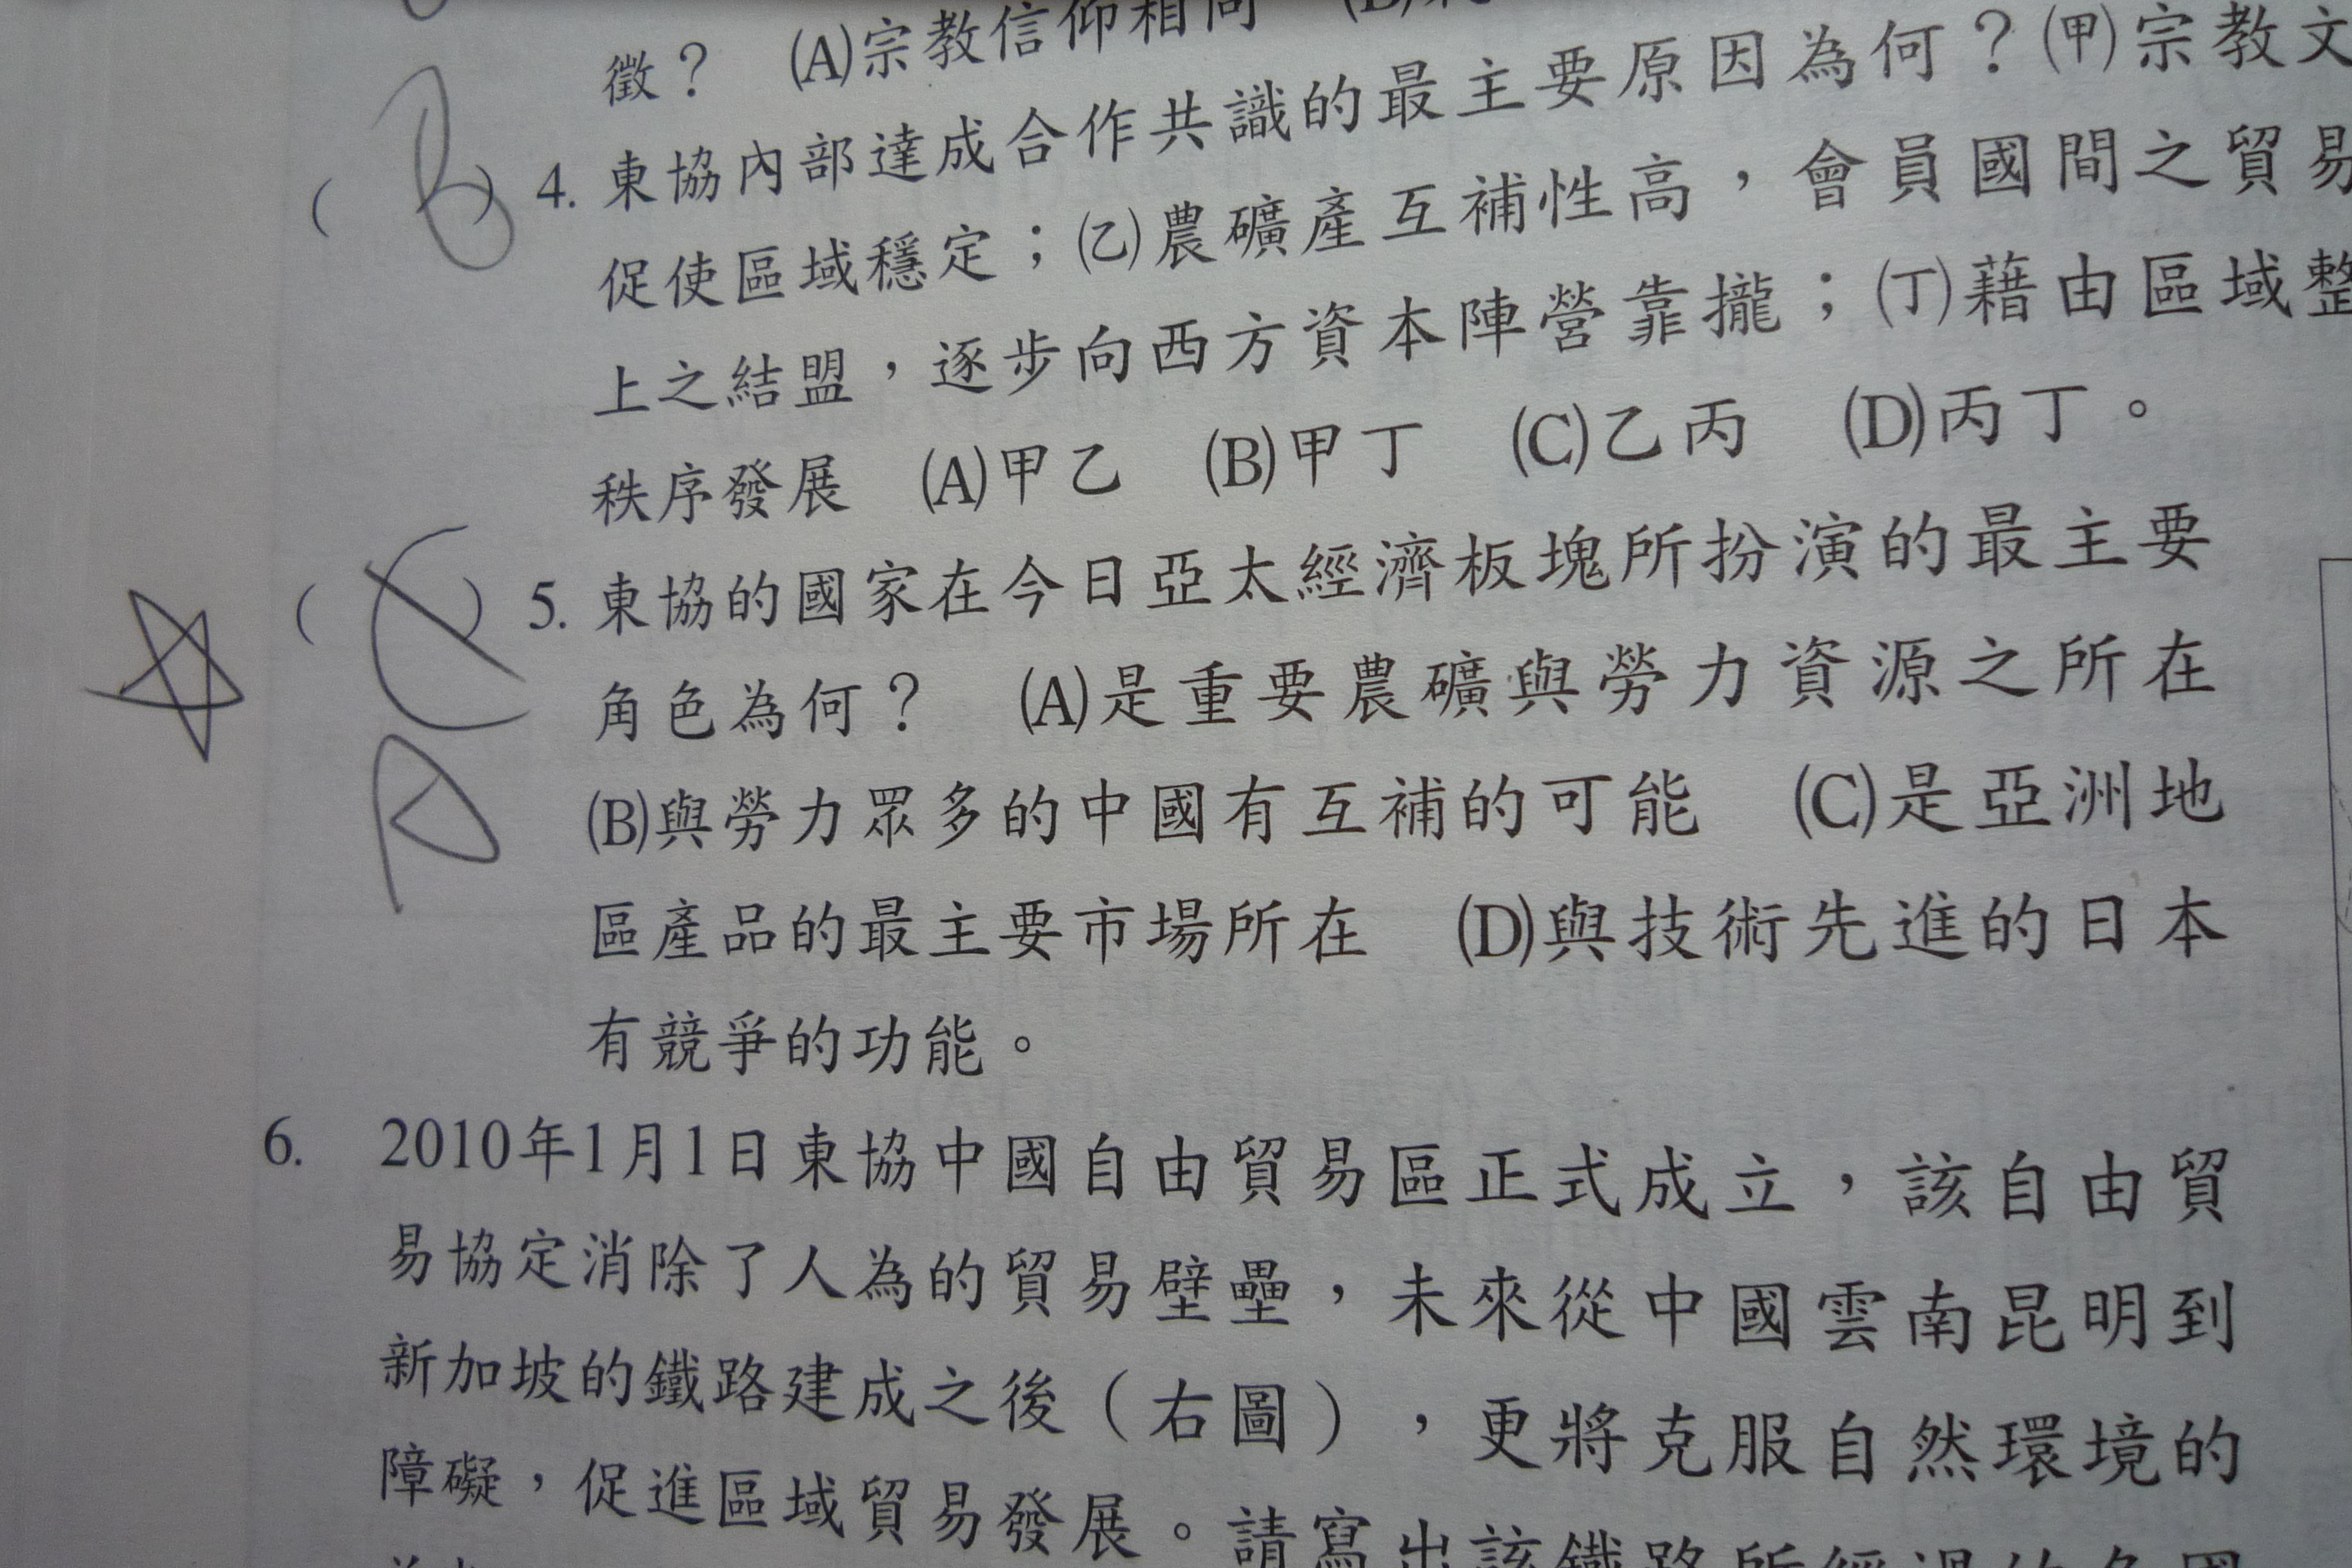 徵？ (A)宗教信仰相同
( B ) 4. 東協內部達成合作共識的最主要原因為何？(甲)宗教文
促使區域穩定；(乙)農礦產互補性高，會員國間之貿易
上之結盟，逐步向西方資本陣營靠攏；(丁)藉由區域整
秩序發展 (A)甲乙 (B)甲丁 (C)乙丙 (D)丙丁。
( C ) 5. 東協的國家在今日亞太經濟板塊所扮演的最主要
角色為何？ (A)是重要農礦與勞力資源之所在
A
(B)與勞力眾多的中國有互補的可能 (C)是亞洲地
區產品的最主要市場所在 (D)與技術先進的日本
有競爭的功能。
6. 2010年1月1日東協中國自由貿易區正式成立，該自由貿
易協定消除了人為的貿易壁壘，未來從中國雲南昆明到
新加坡的鐵路建成之後（右圖），更將克服自然環境的
障礙，促進區域貿易發展。請寫出該鐵路所經過的